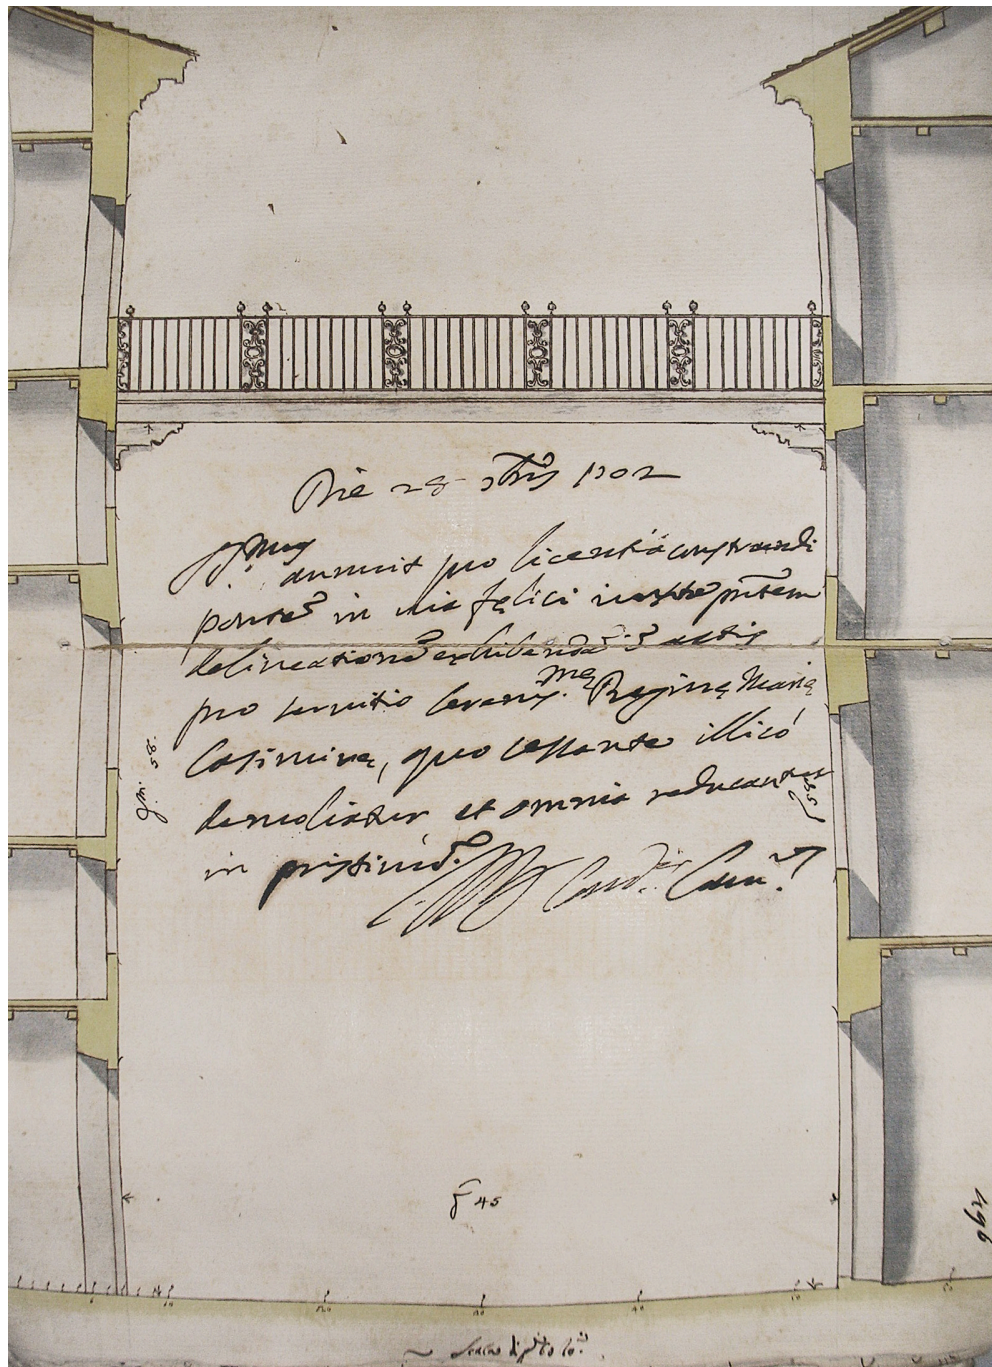 Die 28 9bris 1702
Ill.mus annuit pro licentia construendi
ponte in via felici iuxta pntem
delineatione exhibenda in actis
pro servitio Sereniss.mę Reginę Marię
Casimirę, quo cessante illicó
demoliatur et omnia reducantur
in pristinū.
Card.
Cam.
p.mi 56
45
10
20
30
40
50
496
Scala di p.mi